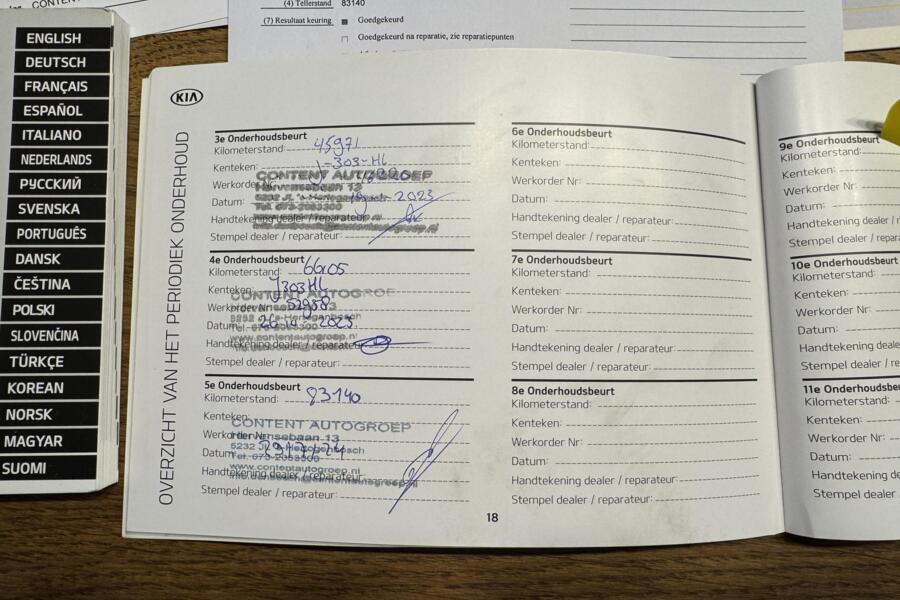 CONTENT
(4) Tellerstand 83140
(7) Resultaat keuring Goedgekeurd
Goedgekeurd na reparatie, zie reparatiepunten
ENGLISH
DEUTSCH
FRANÇAIS
ESPAÑOL
ITALIANO
NEDERLANDS
РУССКИЙ
SVENSKA
PORTUGUÊS
DANSK
ČEŠTINA
POLSKI
SLOVENČINA
TÜRKÇE
KOREAN
NORSK
MAGYAR
SUOMI
KIA
OVERZICHT VAN HET PERIODIEK ONDERHOUD
3e Onderhoudsbeurt
Kilometerstand: 45971
Kenteken: J-303-HL
Werkorder
CONTENT AUTOGROEP
Hervensebaan 13
Datum: 2023
Handtekening dealer / reparateur:
Stempel dealer / reparateur:
4e Onderhoudsbeurt
Kilometerstand: 66105
Kenteken: J303HL
CONTENT AUTOGROEP
Werkorder
Datum: 2023
www.contentautogroep.nl
Handtekening dealer / reparateur
Stempel dealer / reparateur:
5e Onderhoudsbeurt
Kilometerstand: 83140
Kenteken:
CONTENT AUTOGROEP
Werkorder
Hervensebaan 13
5232 JL 's-Hertogenbosch
Datum
Tel. 073-2053300
www.contentautogroep.nl
Handtekening dealer / reparateur:
Stempel dealer / reparateur:
6e Onderhoudsbeurt
Kilometerstand:
Kenteken:
Werkorder Nr:
Datum:
Handtekening dealer / reparateur:
Stempel dealer / reparateur:
7e Onderhoudsbeurt
Kilometerstand:
Kenteken:
Werkorder Nr:
Datum:
Handtekening dealer / reparateur:
Stempel dealer / reparateur:
8e Onderhoudsbeurt
Kilometerstand:
Kenteken:
Werkorder Nr:
Datum:
Handtekening dealer / reparateur:
Stempel dealer / reparateur:
18
9e Onderhoudsbeurt
Kilometerstand:
Kenteken:
Werkorder Nr:
Datum:
Handtekening dealer / r
Stempel dealer / repara
10e Onderhoudsbeurt
Kilometerstand:
Kenteken:
Werkorder Nr:
Datum:
Handtekening deale
Stempel dealer / re
11e Onderhoudsbe
Kilometerstand:
Kenteken:
Werkorder Nr:
Datum:
Handtekening d
Stempel dealer